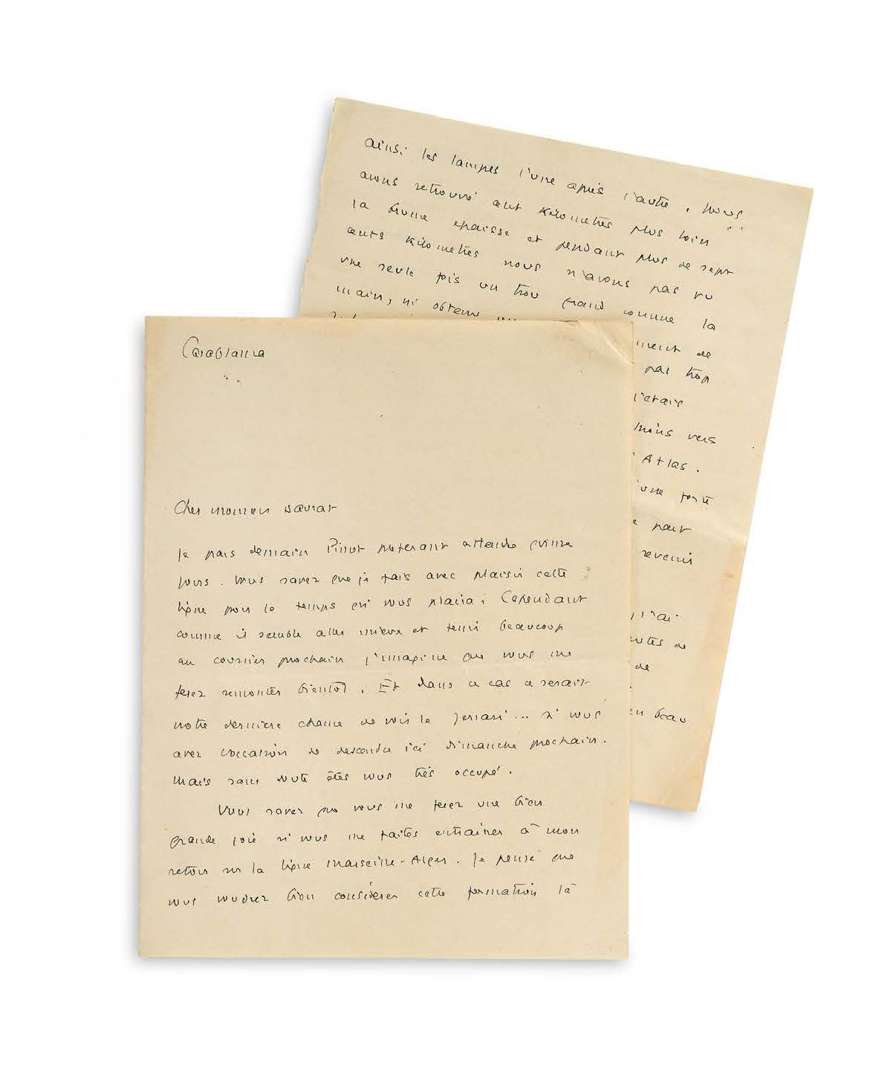 Casablanca
Cher monsieur Daurat
Je pars demain Pinot préférant attendre quinze
jours. Vous savez que je fais avec plaisir cette
ligne pour le temps qu'il vous plaira. Cependant
comme il semble aller mieux et tenir beaucoup
au courrier prochain j'imagine que vous me
ferez remonter bientôt. Et dans ce cas ce serait
notre dernière chance de voir le ... si vous
avez l'occasion de descendre ici dimanche prochain.
Mais sans doute êtes vous très occupé.
Vous savez que vous me ferez une bien
grande joie si vous me faites entraîner à mon
retour sur la ligne Marseille-Alger. Je pense que
vous voudrez bien considérer cette formation là
ainsi les lampes l'une après l'autre. Nous
avons retrouvé cent kilomètres plus loin
la brume épaisse et pendant plus de sept
cents kilomètres nous n'avons pas vu
une seule fois un trou grand comme la
main, ni obtenu
ment de
pas trop
j'étais
moins vers
l'Atlas.
une forte
part
revenir
j'ai
de
de
en beau